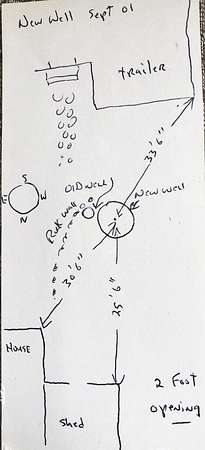 New Well Sept 01
trailer
33'6"
S
E W
N
Old well
New well
Rock wall
30'6"
25'6"
House
Shed
2 Foot
opening